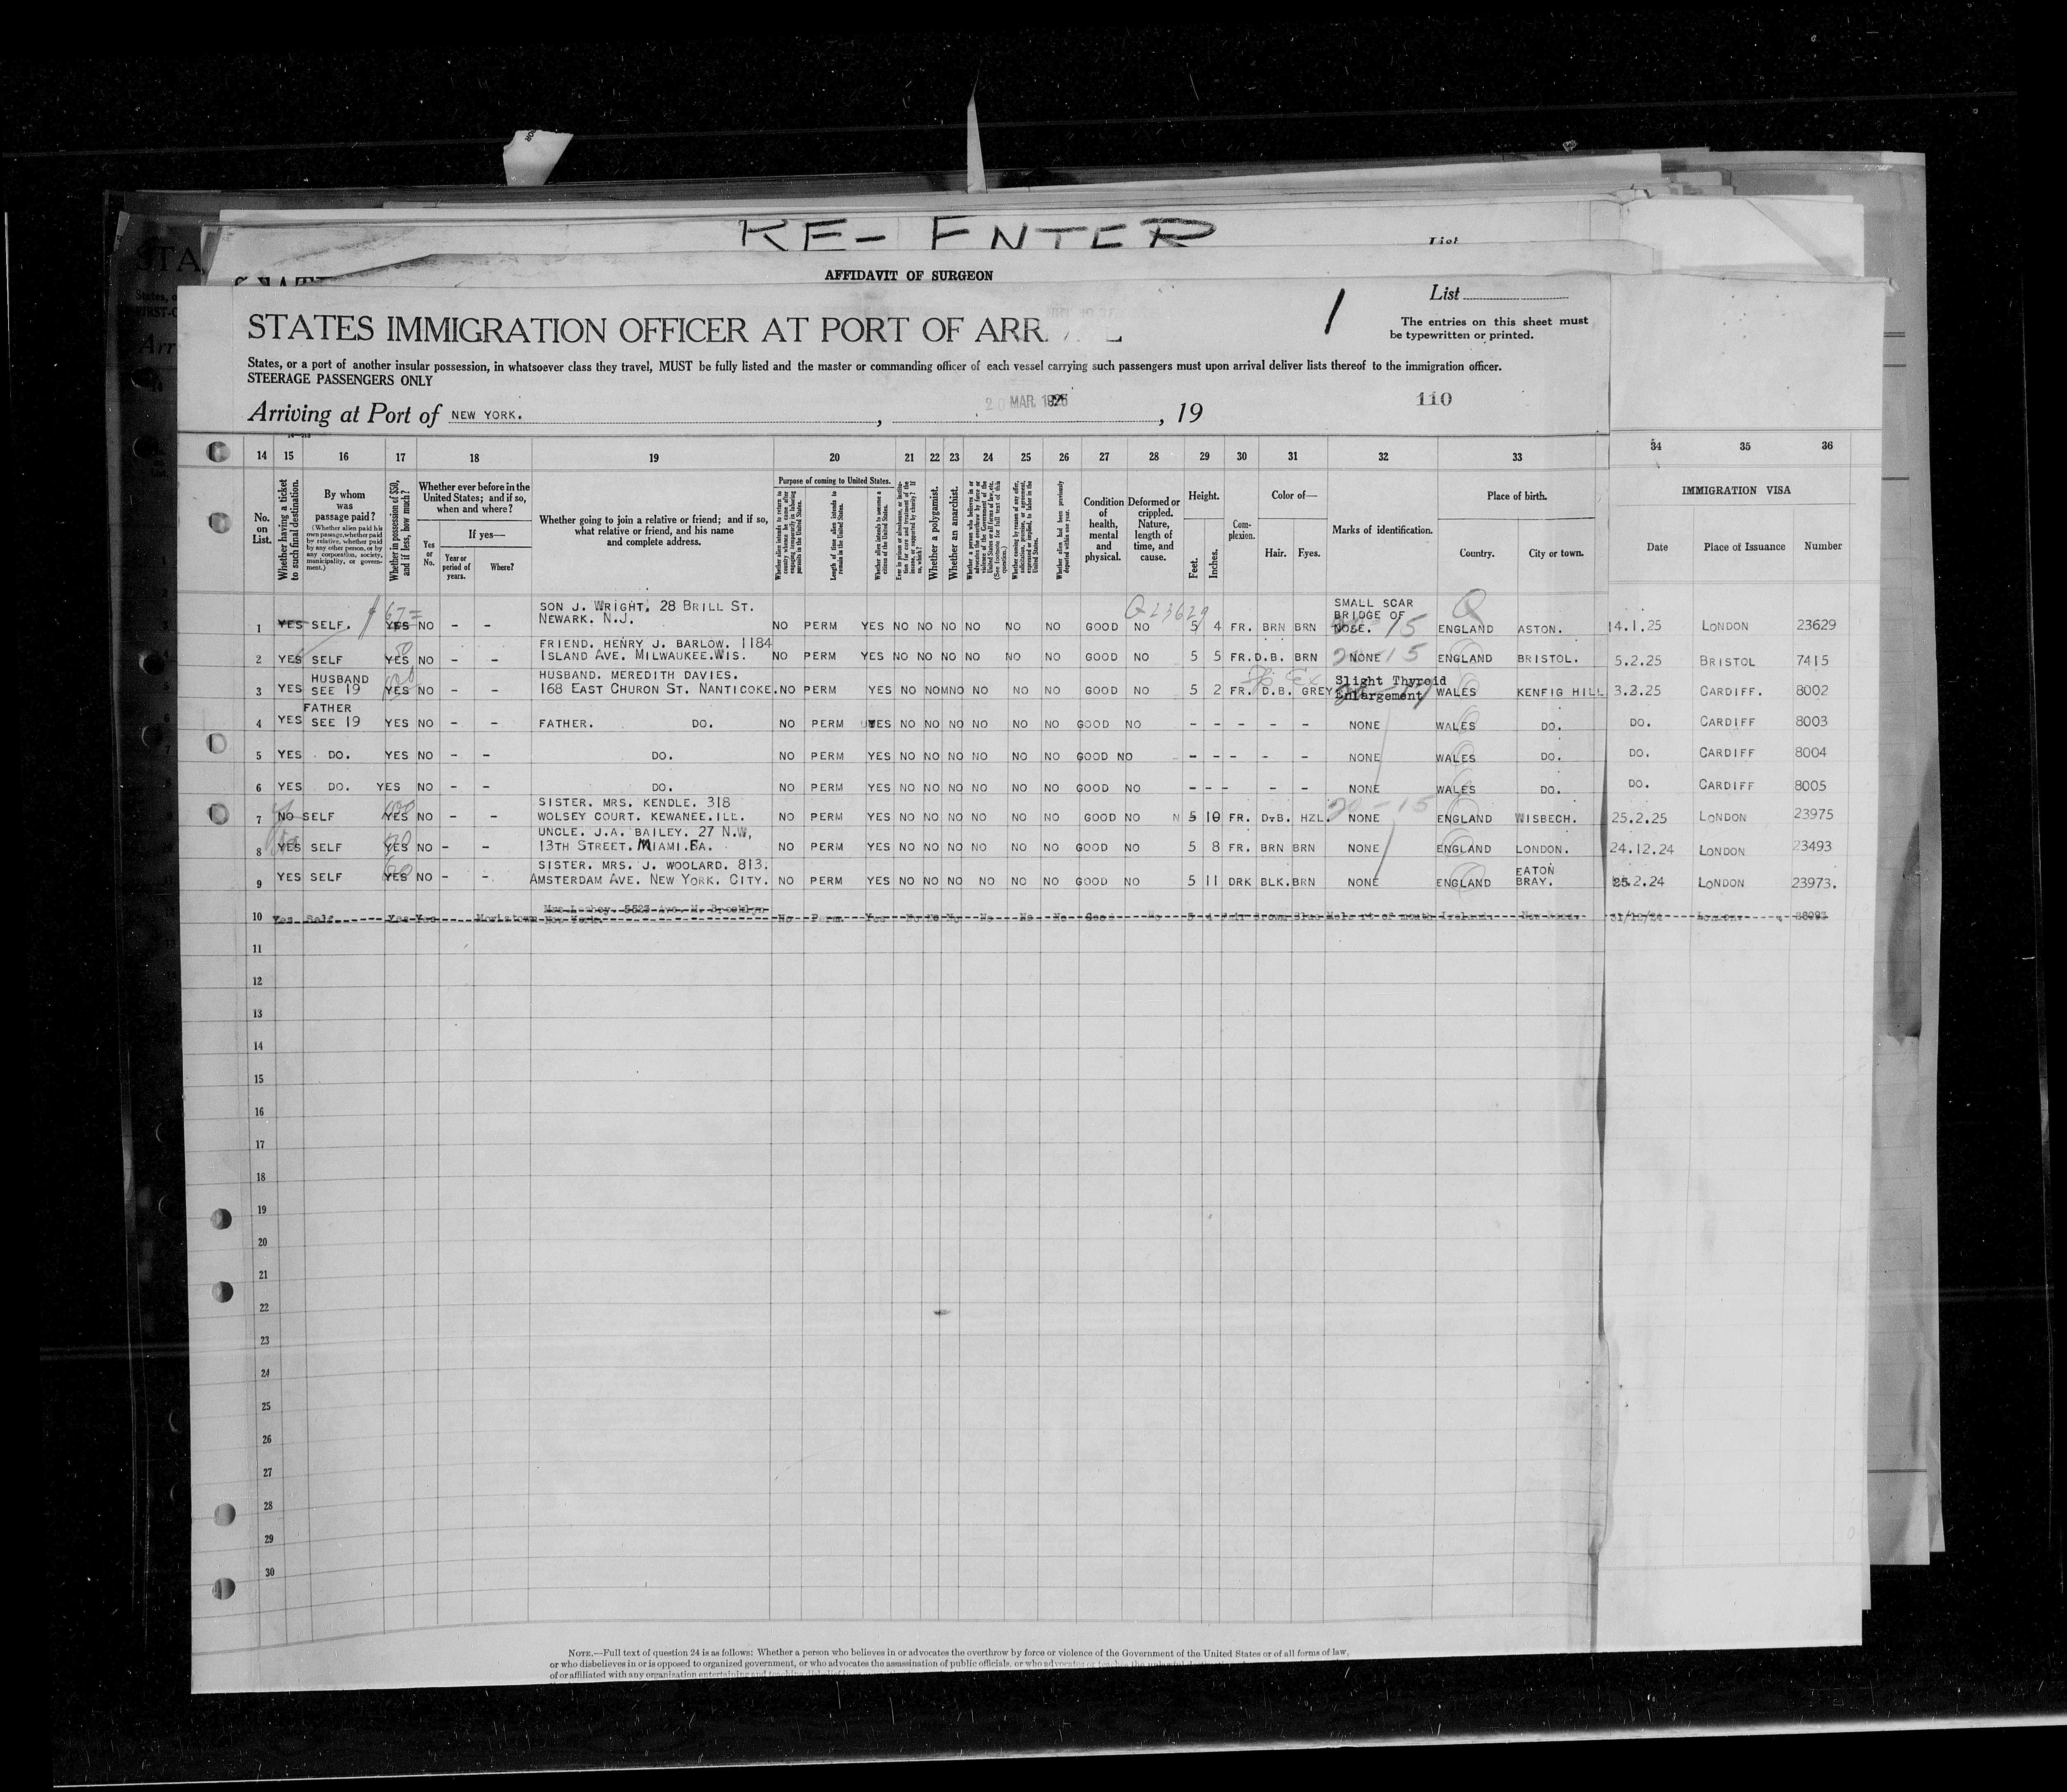 RE- ENTER
List
AFFIDAVIT OF SURGEON
List
STATES IMMIGRATION OFFICER AT PORT OF ARR
1
The entries on this sheet must
be typewritten or printed.
States, or a port of another insular possession, in whatsoever class they travel, MUST be fully listed and the master or commanding officer of each vessel carrying such passengers must upon arrival deliver lists thereof to the immigration officer.
STEERAGE PASSENGERS ONLY
Arriving at Port of NEW YORK. , 20 MAR 1925 , 19 110
14 15 16 17 18 19 20 21 22 23 24 25 26 27 28 29 30 31 32 33 34 35 36
No. on List.
Whether having a ticket to such final destination.
By whom was passage paid?
(Whether alien paid his own passage, whether paid by relative, whether paid by any other person, or by any corporation, society, municipality, or government.)
Whether in possession of $50, and if less, how much?
Whether ever before in the United States; and if so, when and where?
Yes or No.
If yes—
Year or period of years.
Where?
Whether going to join a relative or friend; and if so, what relative or friend, and his name and complete address.
Purpose of coming to United States.
Length of time alien intends to remain in the United States.
Whether alien intends to become a citizen of the United States.
Whether a polygamist.
Whether an anarchist.
Condition of health, mental and physical.
Deformed or crippled. Nature, length of time, and cause.
Height.
Feet. Inches.
Complexion.
Color of—
Hair. Eyes.
Marks of identification.
Place of birth.
Country. City or town.
IMMIGRATION VISA
Date Place of Issuance Number
1 YES SELF. 67= YES NO - - SON J. WRIGHT. 28 BRILL ST. NEWARK. N.J. NO PERM YES NO NO NO NO NO NO GOOD NO Q23629 5 4 FR. BRN BRN SMALL SCAR BRIDGE OF NOSE. ENGLAND ASTON. 14.1.25 LONDON 23629
2 YES SELF YES NO - - FRIEND. HENRY J. BARLOW. 1184 ISLAND AVE. MILWAUKEE.WIS. NO PERM YES NO NO NO NO NO NO GOOD NO 5 5 FR. D.B. BRN NONE ENGLAND BRISTOL. 5.2.25 BRISTOL 7415
3 YES HUSBAND SEE 19 YES NO - - HUSBAND. MEREDITH DAVIES. 168 EAST CHURON ST. NANTICOKE. NO PERM YES NO NOMNO NO NO NO GOOD NO 5 2 FR. D.B. GREY Slight Thyroid Enlargement WALES KENFIG HILL 3.2.25 CARDIFF. 8002
4 YES FATHER SEE 19 YES NO - - FATHER. DO. NO PERM YES NO NO NO NO NO NO GOOD NO - - - - - NONE WALES DO. DO. CARDIFF 8003
5 YES DO. YES NO - - DO. NO PERM YES NO NO NO NO NO NO GOOD NO - - - - - NONE WALES DO. DO. CARDIFF 8004
6 YES DO. YES NO - - DO. NO PERM YES NO NO NO NO NO NO GOOD NO - - - - - NONE WALES DO. DO. CARDIFF 8005
7 NO SELF YES NO - - SISTER. MRS. KENDLE. 318 WOLSEY COURT. KEWANEE.ILL. NO PERM YES NO NO NO NO NO NO GOOD NO N 5 10 FR. D.B. HZL. 20-15 NONE ENGLAND WISBECH. 25.2.25 LONDON 23975
8 YES SELF YES NO - - UNCLE. J.A. BAILEY. 27 N.W, 13TH STREET. MIAMI.FA. NO PERM YES NO NO NO NO NO NO GOOD NO 5 8 FR. BRN BRN NONE ENGLAND LONDON. 24.12.24 LONDON 23493
9 YES SELF 60 YES NO - - SISTER. MRS. J. WOOLARD. 813. AMSTERDAM AVE. NEW YORK. CITY. NO PERM YES NO NO NO NO NO NO GOOD NO 5 11 DRK BLK. BRN NONE ENGLAND EATON BRAY. 25.2.24 LONDON 23973.
10 Yes Self Yes Yes Moristown 5523 Ave. M. Brooklyn New York. No Perm Yes No No No No No No Good No 5 4 Fair Brown Blue Mole rt of mouth Ireland. 31/12/24 London.
11
12
13
14
15
16
17
18
19
20
21
22
23
24
25
26
27
28
29
30
NOTE.—Full text of question 24 is as follows: Whether a person who believes in or advocates the overthrow by force or violence of the Government of the United States or of all forms of law,
or who disbelieves in or is opposed to organized government, or who advocates the assassination of public officials, or who advocates or teaches the unlawful
of or affiliated with any organization entertaining and teaching